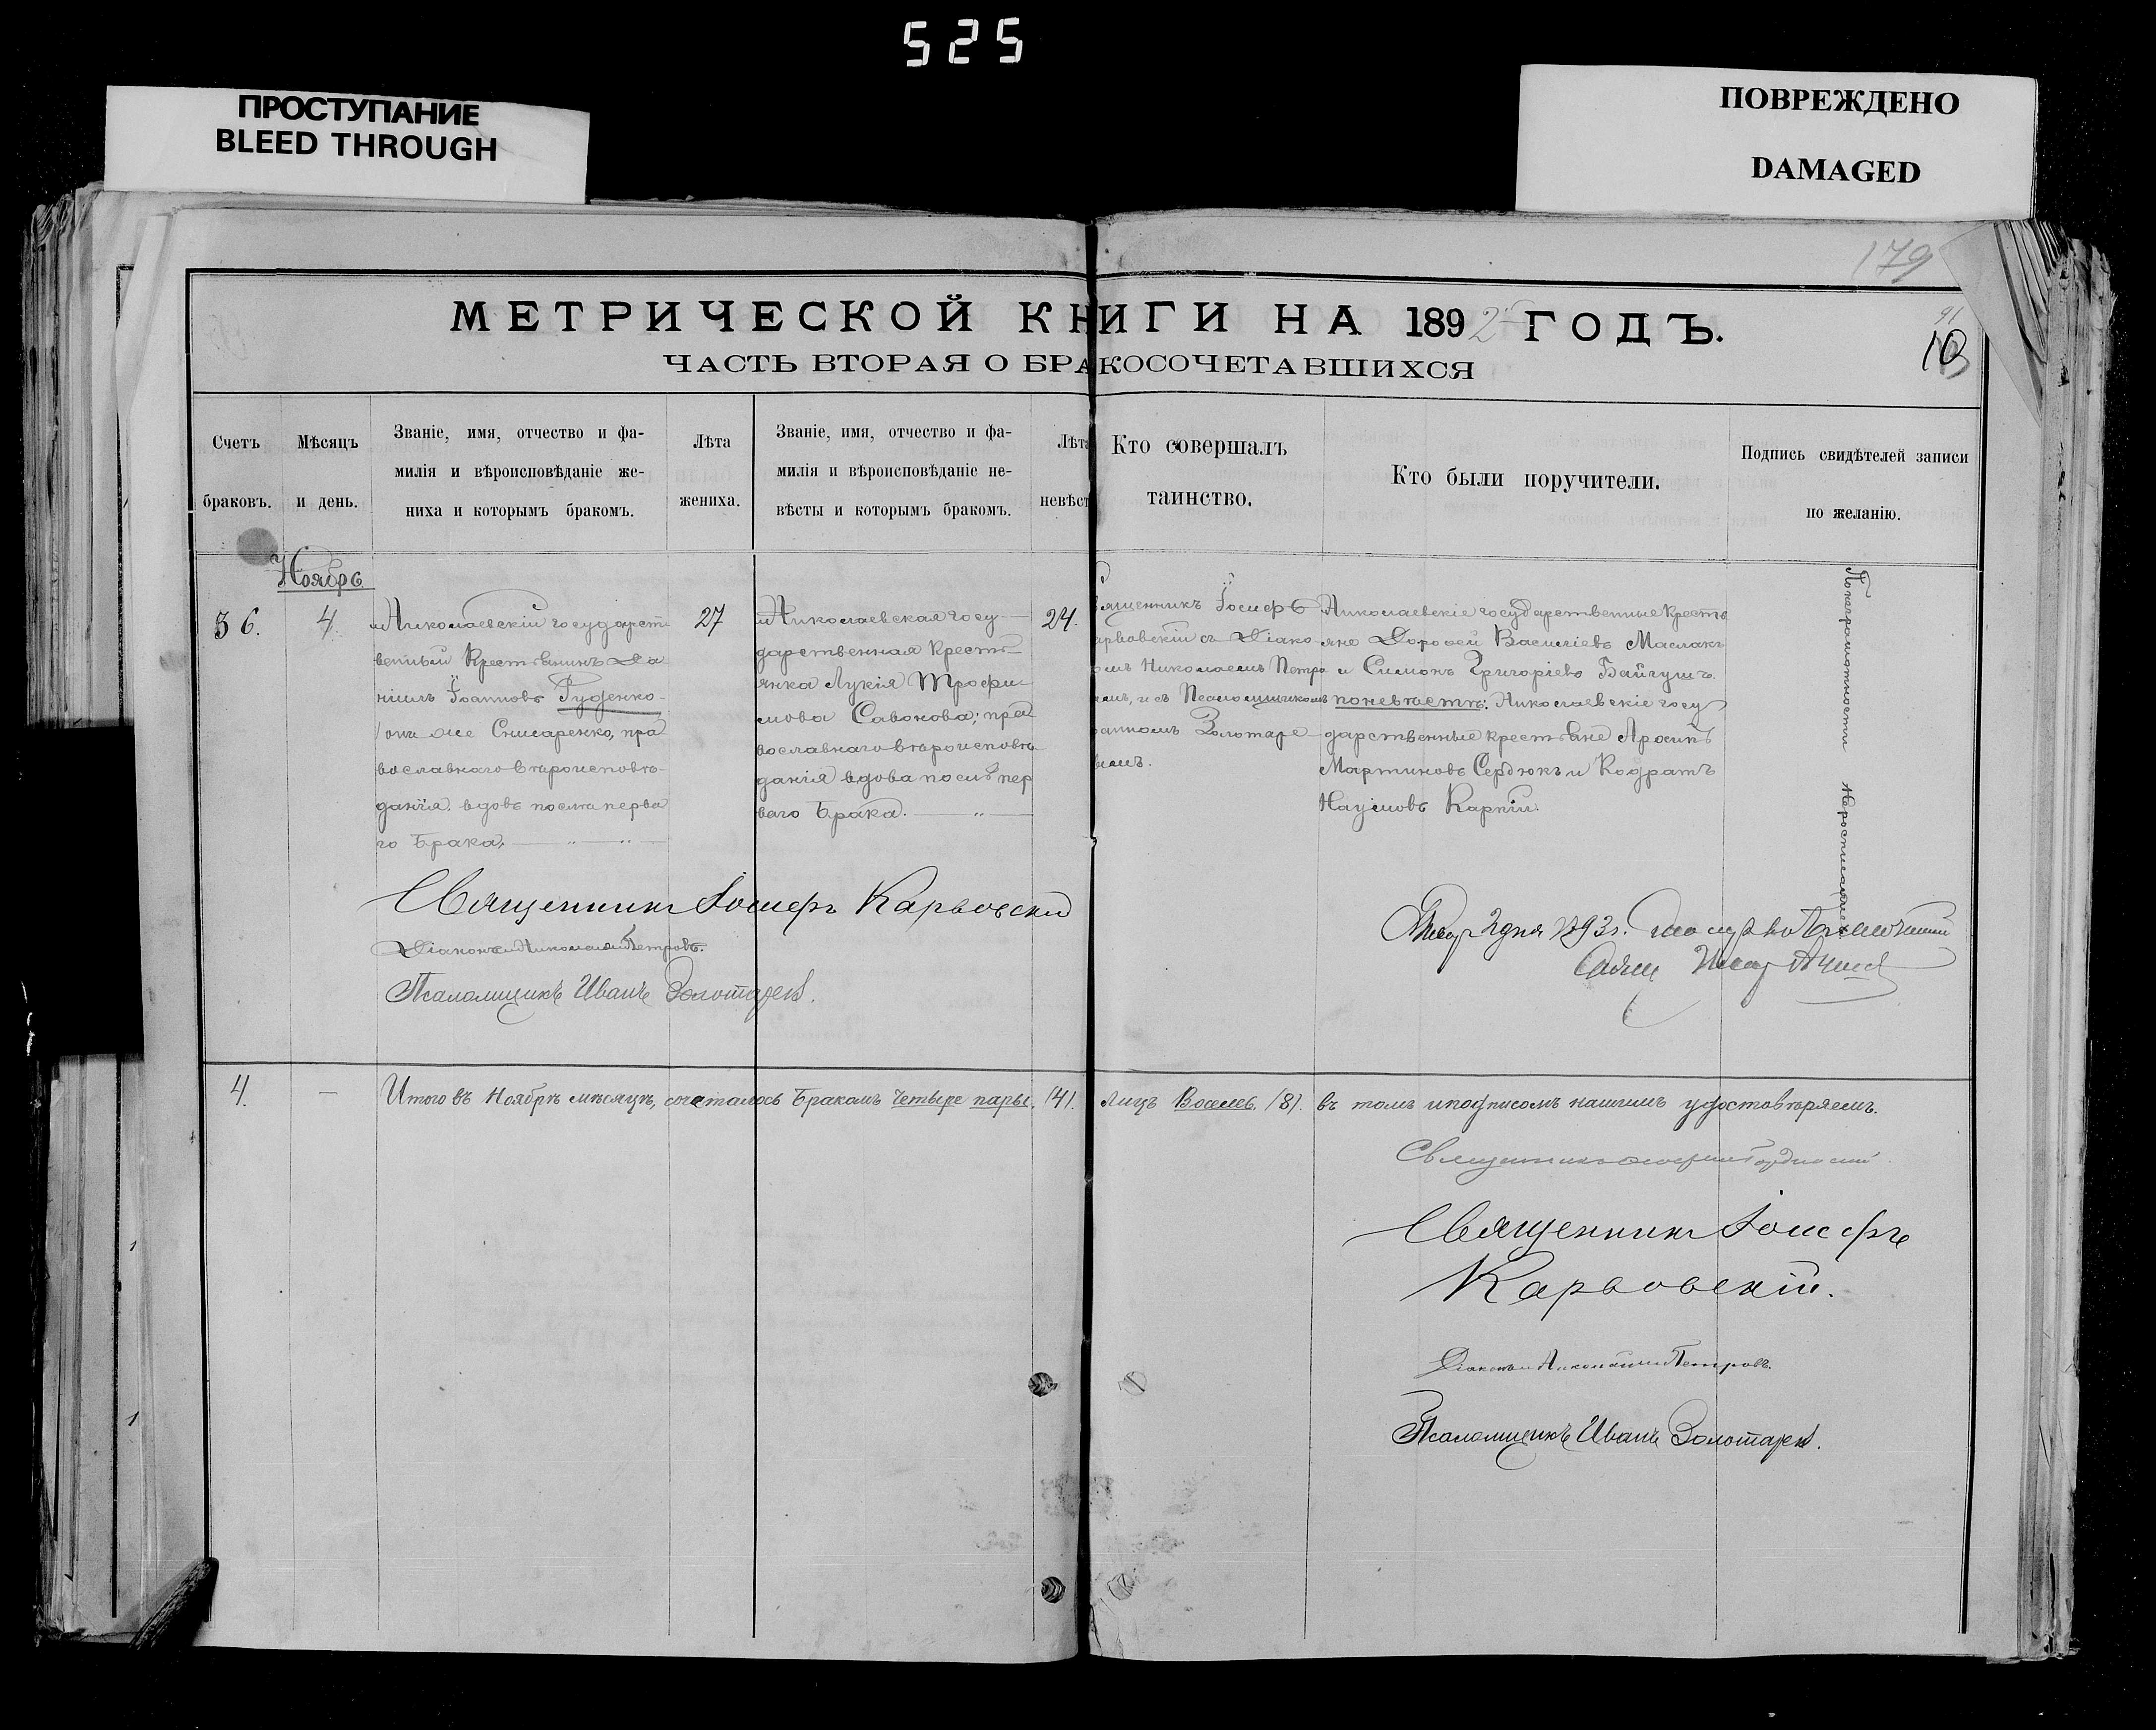 525
ПРОСТУПАНИЕ
BLEED THROUGH
ПОВРЕЖДЕНО
DAMAGED
179
МЕТРИЧЕСКОЙ КНИГИ НА 1892 ГОДЪ.
ЧАСТЬ ВТОРАЯ О БРАКОСОЧЕТАВШИХСЯ
Счетъ
браковъ.
Мѣсяцъ
и день.
Званіе, имя, отчество и фа-
милія и вѣроисповѣданіе же-
ниха и которымъ бракомъ.
Лѣта
жениха.
Званіе, имя, отчество и фа-
милія и вѣроисповѣданіе не-
вѣсты и которымъ бракомъ.
Лѣта
невѣст
Кто совершалъ
таинство.
Кто были поручители.
Подпись свидѣтелей записи
по желанію.
Ноябрь
36.
4.
Николаевскій государст
венный Крестьянинъ Да
ніилъ Іоанновъ Руденко
онъ же Снисаренко, пра
вославнаго вѣроисповѣ-
данія, вдовъ послѣ перва
го брака.
27
Николаевская госу
дарственная Кресть-
янка Лукія Трофи-
мова Савонова; пра
вославнаго вѣроисповѣ
данія вдова послѣ пер
ваго брака.
24.
ященникъ Іосифъ
арвовскій съ Діако
омъ Николаемъ Петро
ымъ, и съ Псаломщикомъ
анномъ Золотаре
вымъ.
Николаевскіе государственные Кресть
яне Дорофей Василіевъ Маслакъ
и Симонъ Григоріевъ Байгушъ.
по невѣстѣ: Николаевскіе госу
дарственные крестьяне
Мартиновъ Сердюкъ и Кодратъ
Наумовъ Карпій.
По неграмотности не росписались
Священникъ Іосифъ Карвовскій
Діаконъ Николай Петровъ.
Псаломщикъ Иванъ Золотаревъ.
2 дня 1893 г.
4.
—
Итого въ Ноябрѣ мѣсяцѣ, сочеталось бракомъ Четыре пары. (4). лицъ Восемь. (8). въ томъ и подписомъ нашимъ удостовѣряемъ.
Священникъ Іосифъ
Карвовскій.
Діаконъ Николай Петровъ.
Псаломщикъ Иванъ Золотаревъ.